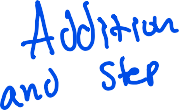 Addition
and Step